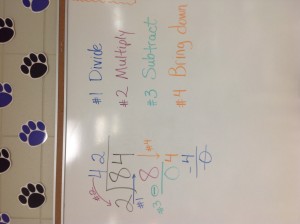 #1 Divide
#2 Multiply
#3 Subtract
#4 Bring down
42
2)84
#2
#1
#3 - 8 #4
04
-4
0